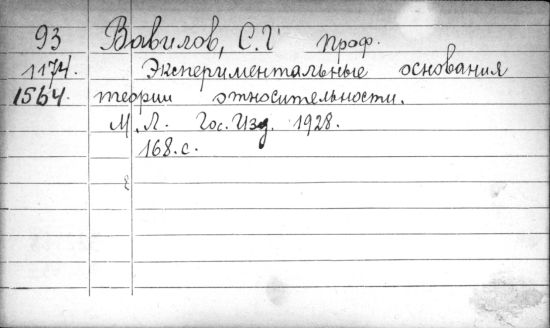 93 Вавилов, С.И проф.
1174. Экспериментальные основания
1564. теории относительности.
М.Л. Гос.Изд. 1928.
168.с.